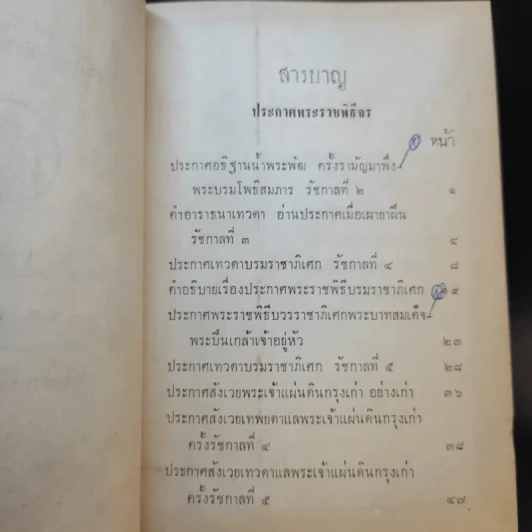 สารบาญ
ประกาศพระราชพิธีจร
หน้า
ประกาศอธิฐานน้ำพระพัฒ ครั้งรามัญมาพึ่ง
พระบรมโพธิสมภาร รัชกาลที่ ๒ ๑
คำอาราธนาเทวดา อ่านประกาศเมื่อเผายาฝิ่น
รัชกาลที่ ๓ ๕
ประกาศเทวดาบรมราชาภิเศก รัชกาลที่ ๔ ๘
คำอธิบายเรื่องประกาศพระราชพิธีบรมราชาภิเศก
ประกาศพระราชพิธีบวรราชาภิเศกพระบาทสมเด็จ-
พระปิ่นเกล้าเจ้าอยู่หัว ๒๓
ประกาศเทวดาบรมราชาภิเศก รัชกาลที่ ๕ ๒๘
ประกาศสังเวยพระเจ้าแผ่นดินกรุงเก่า อย่างเก่า ๓๖
ประกาศสังเวยเทพยดาแลพระเจ้าแผ่นดินกรุงเก่า
ครั้งรัชกาลที่ ๔ ๓๘
ประกาศสังเวยเทวดาแลพระเจ้าแผ่นดินกรุงเก่า
ครั้งรัชกาลที่ ๕ ๔๗